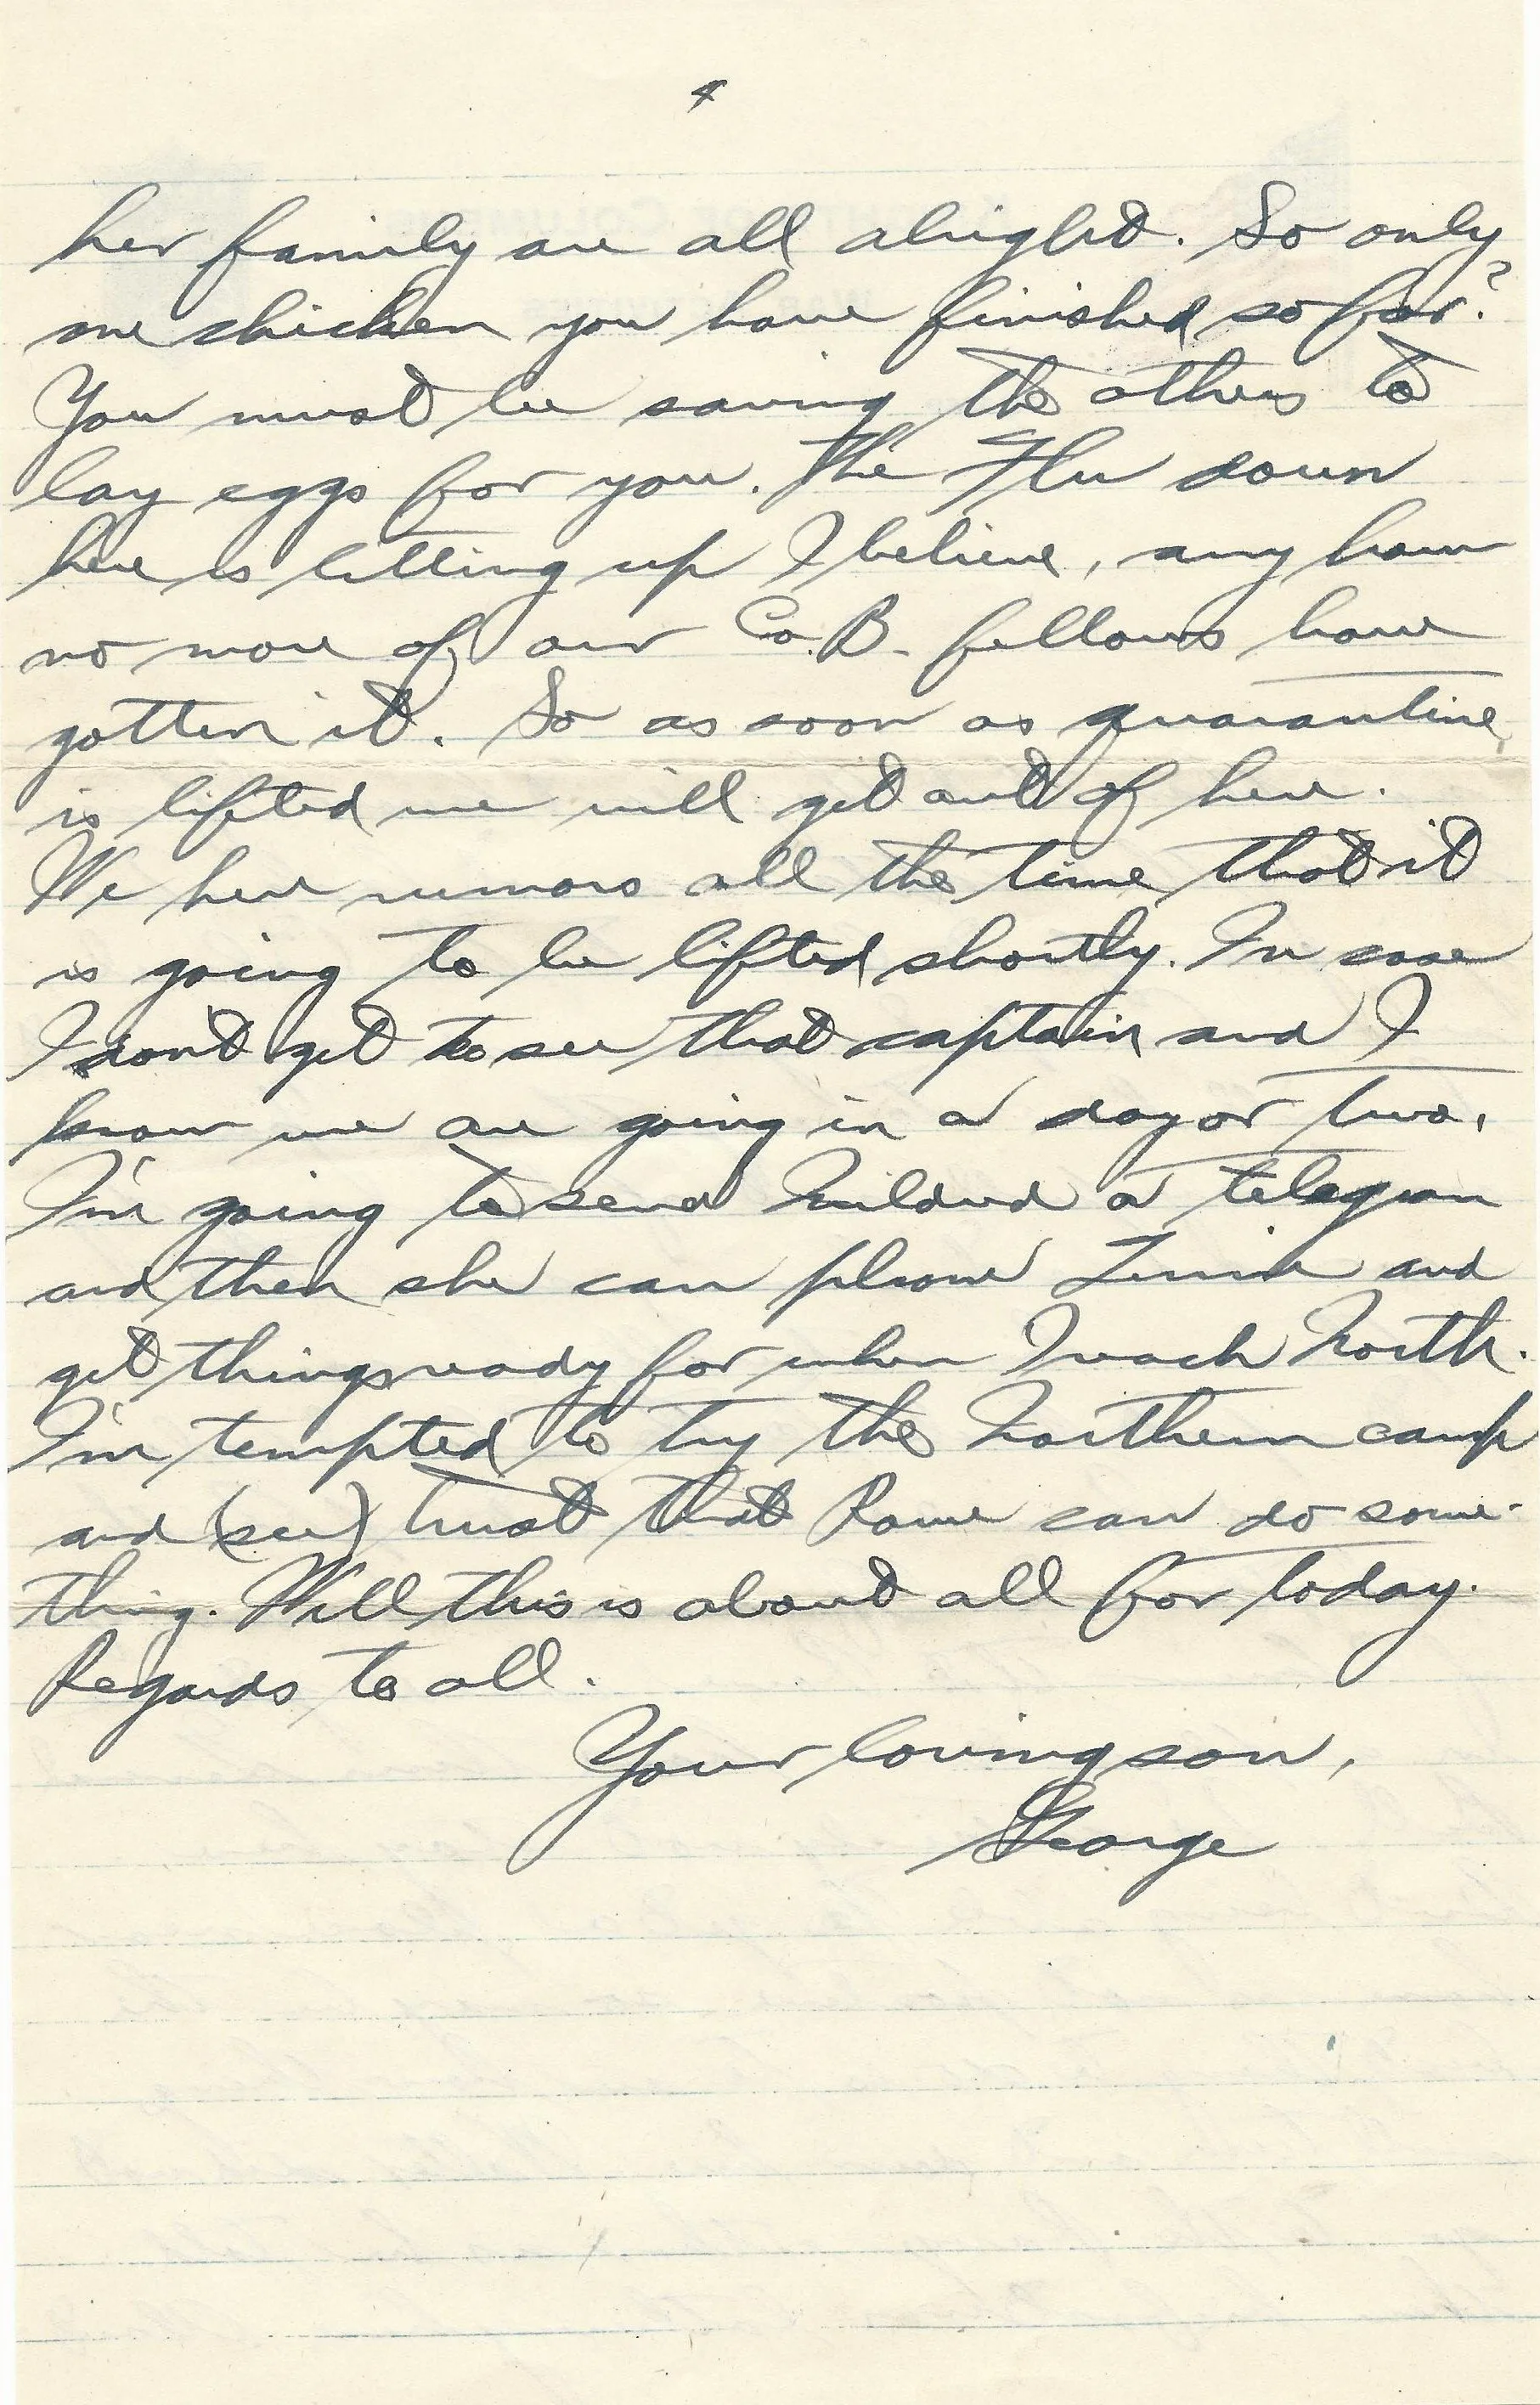 4
her family are all alright. So only
one chicken you have finished so far?
You must be saving the others to
lay eggs for you. The Flu down
here is letting up I believe, any how
no more of our Co. B. fellows have
gotten it. So as soon as quarantine
is lifted we will get out of here.
We hear rumors all the time that it
is going to be lifted shortly. In case
I don't get to see that captain and I
know we are going in a day or two,
I'm going to send Mildred a telegram
and then she can phone and
get things ready for when I reach North.
I'm tempted to try the Northern camp
and (see) trust that Rome can do some-
thing. Well this is about all for today.
Regards to all.
Your loving son,
George